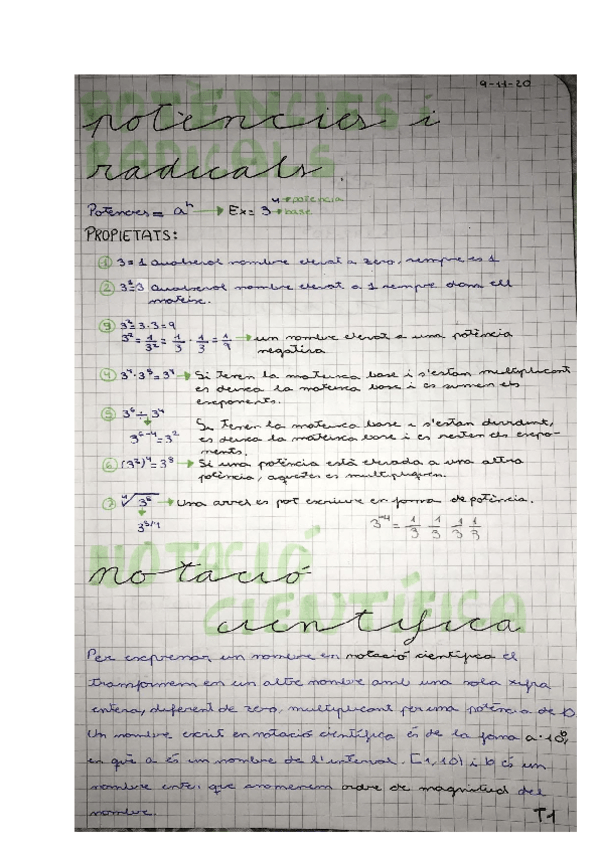 9-11-20
POTÈNCIES i
potències i
RADICALS
radicals.
Potències = aⁿ → Ex = 3⁴ → potència
→ base
PROPIETATS:
① 3 = 1 Qualsevol nombre elevat a zero, sempre és 1
② 3¹=3 Qualsevol nombre elevat a 1 sempre dona ell
mateix.
③ 3²=3·3=9
= 1/3² = 1/3 · 1/3 = 1/9 → un nombre elevat a una potència
negativa
④ → Si tenen la mateixa base i s'estan multiplicant
es deixa la mateixa base i es sumen els
exponents.
⑤ 3⁶ ÷ 3⁴
Si tenen la mateixa base i s'estan dividint,
3⁶⁻⁴=3² es deixa la mateixa base i es resten els expo-
nents.
⑥ (3²)⁴=3⁸ → Si una potència està elevada a una altra
potència, aquestes es multipliquen.
⑦ → Una arrel es pot escriure en forma de potència.
3⁻⁴ = 1/3 1/3 1/3 1/3
NOTACIÓ
notació
CIENTÍFICA
científica
Per expressar un nombre en notació científica el
transformem en un altre nombre amb una sola xifra
entera, diferent de zero, multiplicant per una potència de 10.
Un nombre escrit en notació científica és de la forma a·10ᵇ,
en què a és un nombre de l'interval [1,10) i b és un
nombre enter, que anomenem ordre de magnitud del
nombre.
T1